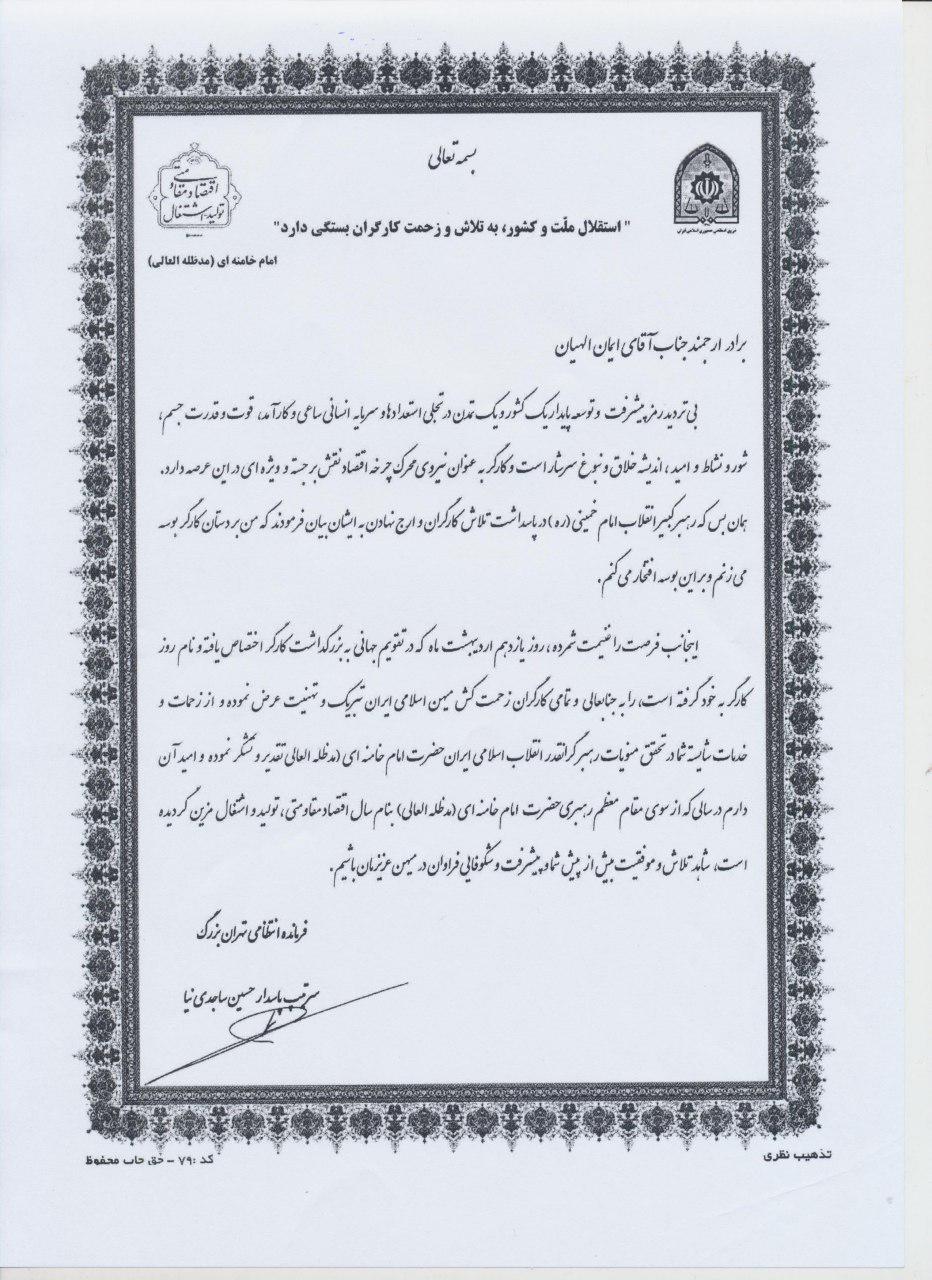 بسمه تعالی
اقتصاد مقاومتی
تولید - اشتغال
نیروی انتظامی جمهوری اسلامی ایران
" استقلال ملّت و کشور، به تلاش و زحمت کارگران بستگی دارد"
امام خامنه ای (مدظله العالی)
برادر ارجمند جناب آقای ایمان الهیان
بی تردید رمز پیشرفت و توسعه پایدار یک کشور و یک تمدن در تجلی استعدادها و سرمایه انسانی ساعی و کارآمد، قوت و قدرت جسم ،
شور و نشاط و امید ، اندیشه خلاق و نبوغ سرشار است و کارگر به عنوان نیروی محرک چرخه اقتصاد نقش برجسته و ویژه ای در این عرصه دارد.
همان بس که رهبر کبیر انقلاب امام خمینی (ره ) در پاسداشت تلاش کارگران و ارج نهادن به ایشان بیان فرمودند که من بر دستان کارگر بوسه
می زنم و بر این بوسه افتخار می کنم .
اینجانب فرصت را غنیمت شمرده ، روز یازدهم اردیبهشت ماه که در تقویم جهانی به بزرگداشت کارگر اختصاص یافته و نام روز
کارگر به خود گرفته است، را به جنابعالی و تمامی کارگران زحمت کش میهن اسلامی ایران تبریک و تهنیت عرض نموده و از زحمات و
خدمات شایسته شما در تحقق منویات رهبر گرانقدر انقلاب اسلامی ایران حضرت امام خامنه ای (مدظله العالی تقدیر و تشکر نموده و امید آن
دارم در سالی که از سوی مقام معظم رهبری حضرت امام خامنه ای (مدظله العالی) بنام سال اقتصاد مقاومتی ، تولید و اشتغال مزین گردیده
است، شاهد تلاش و موفقیت بیش از پیش شما و پیشرفت و شکوفایی فراوان در میهن عزیزمان باشیم .
فرمانده انتظامی تهران بزرگ
سرتیپ پاسدار حسین ساجدی نیا
تذهیب نظری
کد :۷۹ - حق چاپ محفوظ